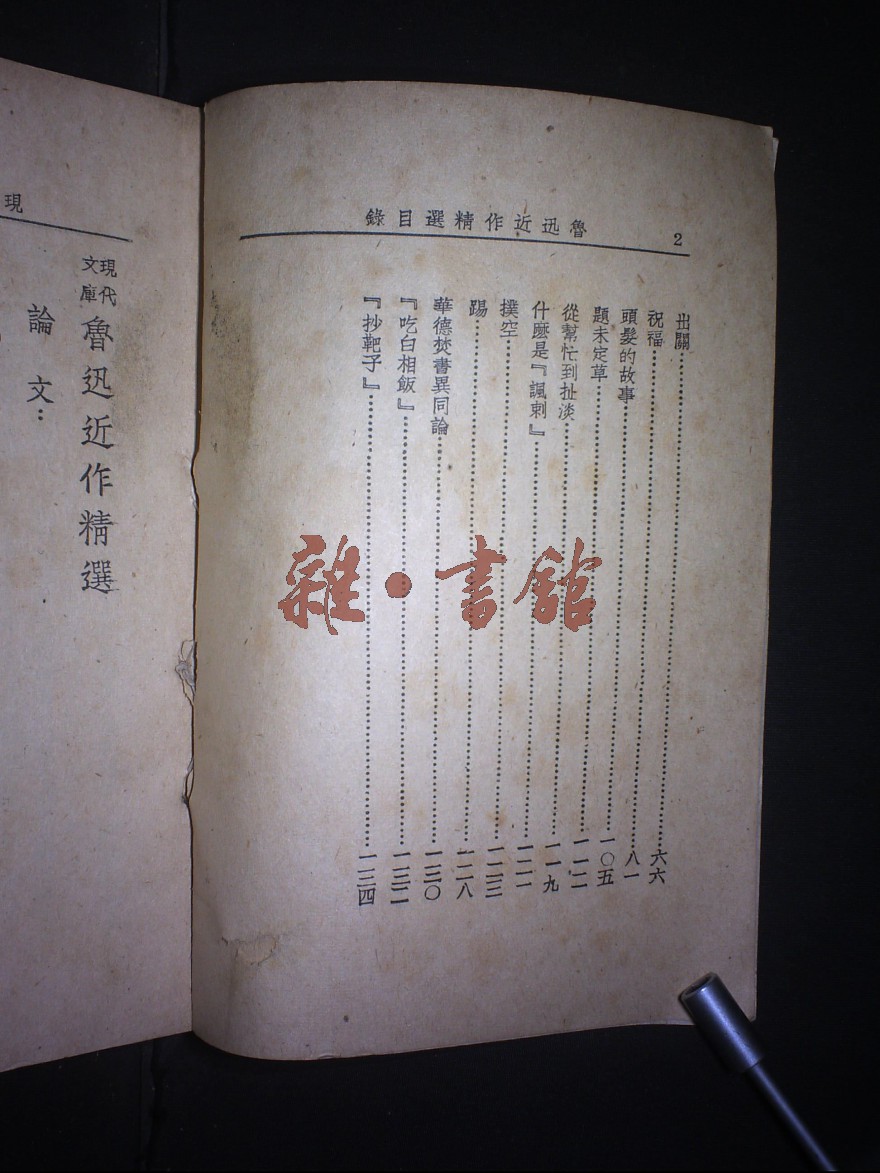 2
魯迅近作精選目錄
出關…………六六
祝福…………八一
頭髮的故事…………一〇五
題未定草…………一一二
從幫忙到扯淡…………一一九
什麼是『諷刺』…………一二一
撲空…………一二三
踢…………一二八
華德焚書異同論…………一三〇
『吃白相飯』…………一三二
『抄靶子』…………一三四
現
現代文庫
魯迅近作精選
論文：
雜·書館